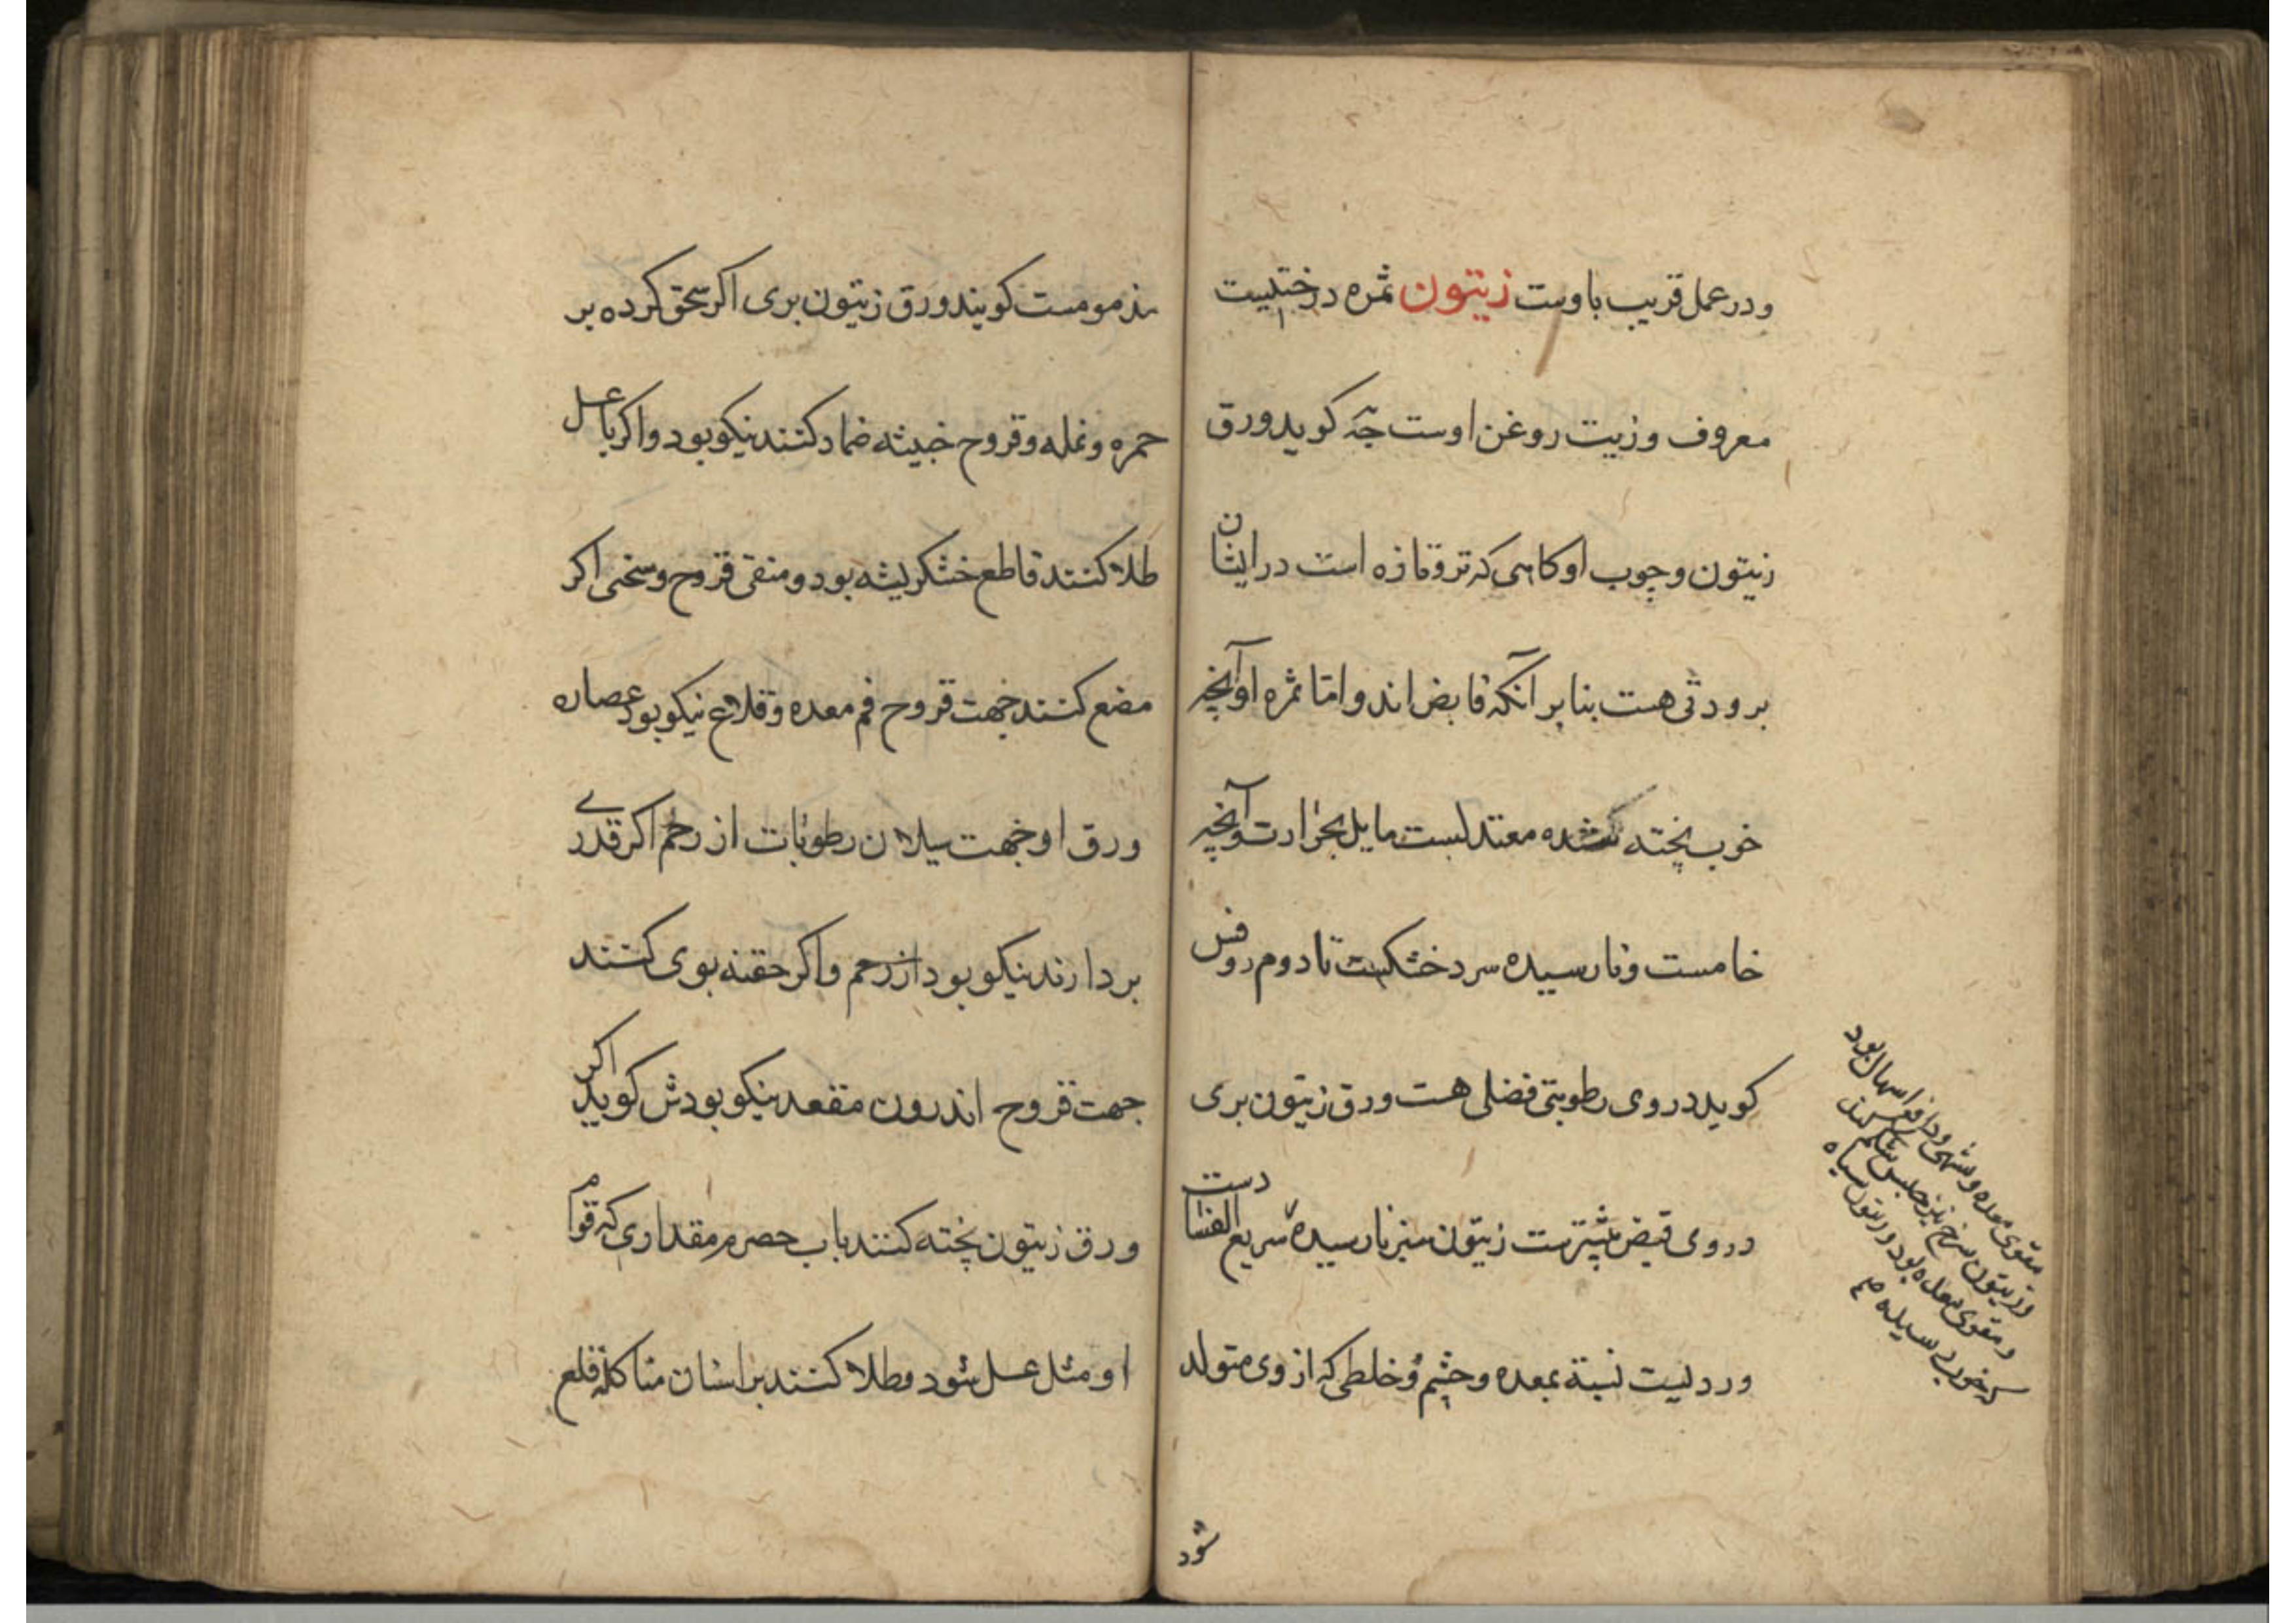 ودر عمل قریب باوست زیتون ثمره درختیست
معروف وزیت روغن اوست جه کوید ورق
زیتون وچوب او کاهی که تروتازه است در ایشان
برودتی هست بنا بر آنکه قابض اند واما ثمره او آنچه
خوب پخته شده معتدلست مایل بحرارت وآنچه
خامست ونارسیده سرد خشکست تا دوم روفس
کوید در وی رطوبتی فضلی هست ورق زیتون بری
در وی قبض بیشترست زیتون سبز نارسیده سریع الفساد است
وردیست نسبة بمعده وچشم وخلطی که از وی متولد
شود
مقوی معده ومشهی ودافع اسهال بود
وزیتون سرخ نیز حابس شکم
ومقوی معده بود وزیتون سیاه
که خوب رسیده
مذمومست کویند ورق زیتون بری اکر سحق کرده بر
حمره ونمله وقروح خبیثه ضماد کنند نیکو بود واکر با عسل
طلا کنند قاطع خشکریشه بود ومنقی قروح وسخی اکر
مضغ کنند جهت قروح فم معده وقلاع نیکو بود عصاره
ورق او جهت سیلان رطوبات از رحم اکر قدری
بردارند نیکو بود از رحم واکر حقنه بوی کنند
جهت قروح اندرون مقعد نیکو بود ش کوید اکر
ورق زیتون پخته کنند باب حصرم مقداری که قوام
او مثل عسل شود وطلا کنند بر اسنان متاکله قلع